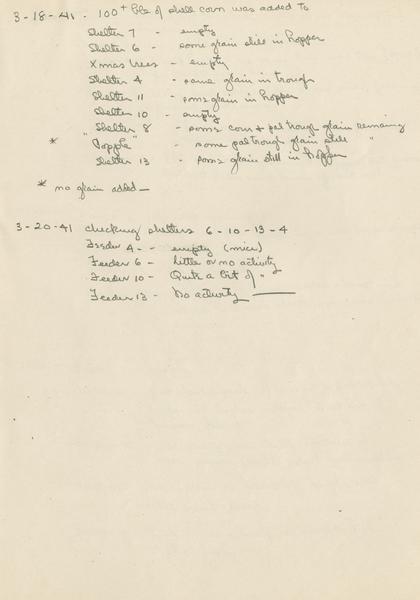 3-18-41. 100+ lbs of shell corn was added to
Shelter 7 - empty
Shelter 6 - some grain still in hopper
Xmas trees - empty
Shelter 4 - some grain in trough
Shelter 11 - some grain in hopper
Shelter 10 - empty
" Shelter 8 - some corn + trough grain remaining
* "Popple" - some trough grain still "
Shelter 13 - some grain still in hopper
* no grain added -
3-20-41 checking shelters 6-10-13-4
Feeder 4 - - empty (mice)
Feeder 6 - Little or no activity
Feeder 10 - Quite a bit of "
Feeder 13 - No activity —